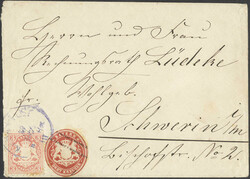 Herrn und Frau
Rechnungsrath Lüdeke
fr. Wohlgeb.
Schwerin i/m
Bischofstr. No 2.